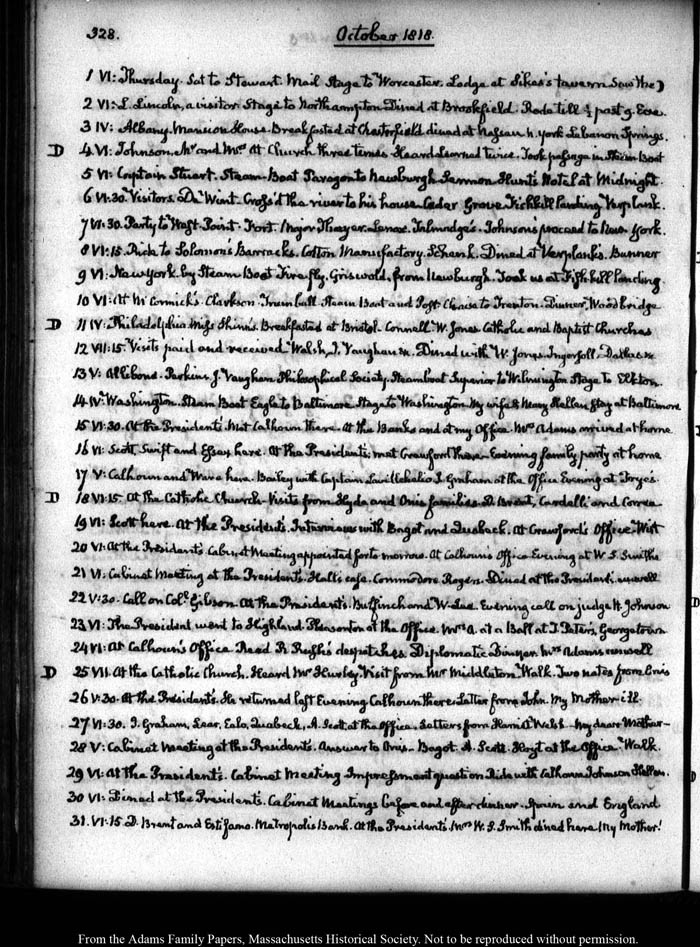 328. October 1818.
1 VI: Thursday. Sat to Stewart. Mail Stage to Worcester. Lodge at Sikes's tavern. Saw the
2 VI: L. Lincoln, a visitor. Stage to Northampton. Dined at Brookfield. Rode till ½ past 9. Eve.
3 IV: Albany. Mansion House. Breakfasted at Chesterfield dined at Nassau N. York Lebanon Springs.
D 4. VI: Johnson. Mr and Mrs At Church three times. Heard Learned twice. Took passage in Steam Boat
5 VI: Captain Stuart. Steam-Boat Paragon to Newburgh. Sermon Hunt's Hotel at Midnight.
6 VI:30. Visitors. De Wint. Cross'd the river to his house Cedar Grove. Fishkill landing Verplank.
7 VI:30. Party to West-Point. Fort. Major Thayer. Lenox. Talmadge's. Johnsons proceed to New York.
8 VI:15. Ride to Solomon's Barracks. Cotton Manufactory. Schenk. Dined at Verplank's. Bunner
9 VI: New York by Steam Boat Fire fly. Griswold, from Newburgh. Took us at Fishkill landing
10 VI: At McCormick's. Clarkson. Trumbull. Steam Boat and Post Chaise to Trenton. Dinner, Woodbridge
D 11 IV: Philadelphia Miss Shinn's. Breakfasted at Bristol. Connell. W. Jones Catholic and Baptist Churches
12 VII:15. Visits paid and received Walsh, J. Vaughan &c. Dined with W. Jones. Ingersoll, Dallas &c
13 V: Allibone. Perkins J. Vaughan. Philosophical Society. Steamboat Superior to Wilmington Stage to Elkton.
14 IV: Washington. Steam Boat Eagle to Baltimore Stage to Washington My wife & Mary Hellen stay at Baltimore
15 VI:30. At the President's. Met Calhoun there. At the Banks and at my Office. Mrs Adams arrived at home
16 VI: Scott, Swift and Essex here. At the President's; met Crawford there. Evening family party at home
17 V: Calhoun and Ware here. Bailey with Captain I. Graham at the Office Evening at Forye's.
D 18 VI:15. At the Catholic Church. Visits from Hyde and Onis families. D. Brent, Cardelli and Correa
19 VI: Scott here. At the President's. Interviews with Bagot and Quabeck. At Crawford's Office. Wirt
20 VI: At the President's. Cabinet Meeting appointed for to morrow. At Calhoun's Office Evening at W. S. Smiths
21 VI: Cabinet Meeting at the President's. Hall's case. Commodore Rogers. Dined at the President's. unwell
22 V:30. Call on Colo. Gibson. At the President's. Bulfinch and W. Lee. Evening call on judge H. Johnson
23 VI: The President went to Highland. Pleasonton at the Office. Mrs A. at a Ball at T. Peter's, Georgetown
24 VI: At Calhoun's Office. Read R. Rush's despatches. Diplomatic Dinner. Mrs Adams unwell
D 25 VII: At the Catholic Church. Heard Mr Hurley. Visit from Mr Middleton. Walk. Two notes from Onis
26 V:30. At the President's. He returned last Evening Calhoun there. Letter from John. My Mother ill.
27 VI:30. J. Graham, Lear, Ealo, Quabeck, A. Scott at the Office. Letters from Harrt. Welsh. My dear Mother
28 V: Cabinet meeting at the President's. Answer to Onis. Bagot. A. Scott. Hoyt at the Office. Walk.
29 VI: At the President's. Cabinet Meeting Impressment question Ride with Calhoun Johnson Hellen.
30 VI: Dined at the President's. Cabinet Meetings before and after dinner. Spain and England
31. VI:15. D. Brent and Estifano. Metropolis Bank. At the President's. Mrs W. S. Smith dined here. My Mother!
From the Adams Family Papers, Massachusetts Historical Society. Not to be reproduced without permission.